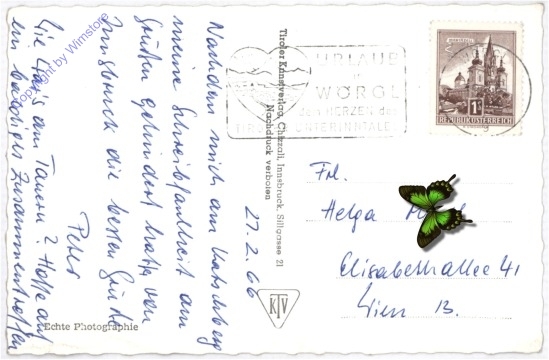 Nachdem mich am Katschberg
meine Schreibfaulheit am
Grüßen gehindert hatte von
Innsbruck die besten Grüße
Peter
27.2.66
Wie war's am Tauern? Hoffe auf
ein baldiges Zusammentreffen
Echte Photographie
Tiroler Kunstverlag, Chizzali, Innsbruck, Sillgasse 21
Nachdruck verboten
KTV
URLAUB
in
WÖRGL
dem HERZEN des
UNTERINNTALES
MARIAZELL
1S
REPUBLIK ÖSTERREICH
Frl.
Helga
Elisabethallee 41
Wien 13.
by Wimstore